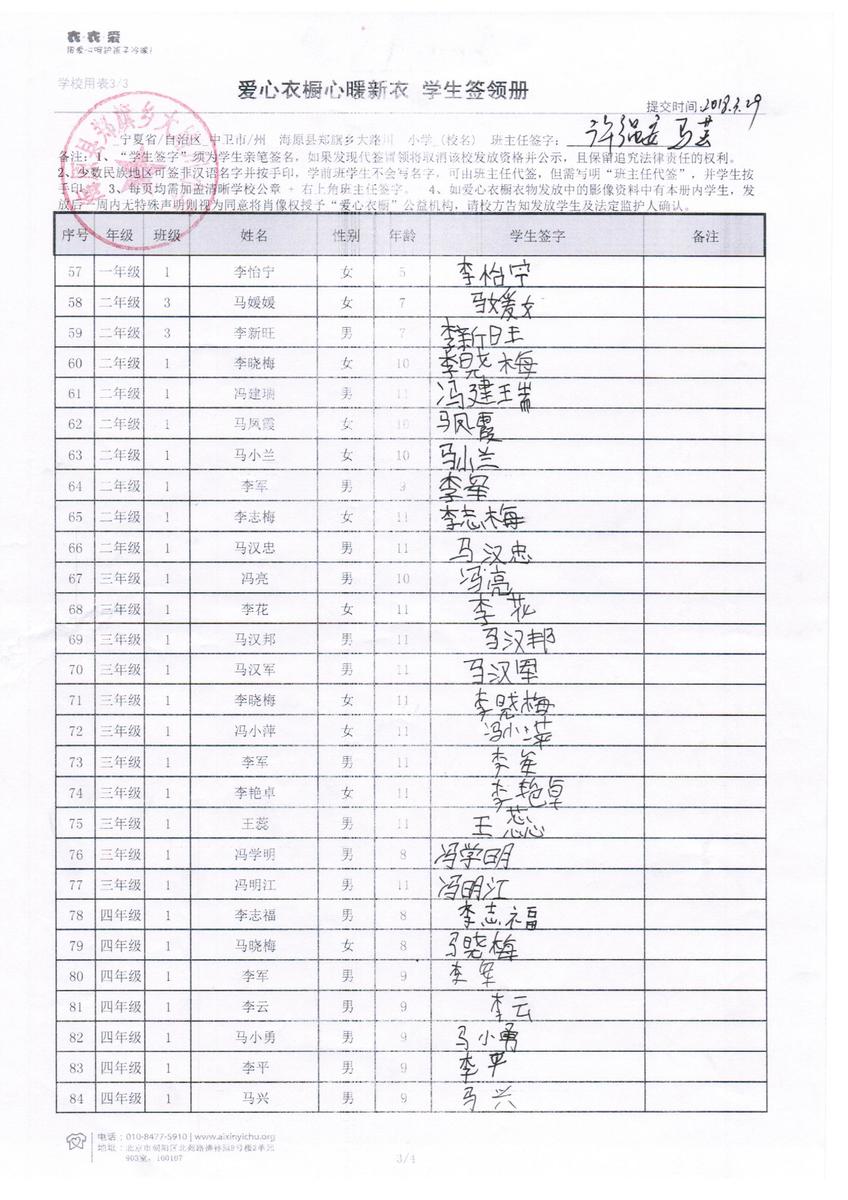 衣衣爱
用爱心呵护孩子冷暖!
学校用表3/3
爱心衣橱心暖新衣 学生签领册
提交时间:2018.3.29
宁夏省/自治区 中卫市/州 海原县郑旗乡大路川 小学 (校名) 班主任签字:
备注:1、“学生签字”须为学生亲笔签名,如果发现代签冒领将取消该校发放资格并公示,且保留追究法律责任的权利。
2、少数民族地区可签非汉语名字并按手印,学前班学生不会写名字,可由班主任代签,但需写明“班主任代签”,并学生按
手印。 3、每页均需加盖清晰学校公章 + 右上角班主任签字。 4、如爱心衣橱衣物发放中的影像资料中有本册内学生,发
放后一周内无特殊声明则视为同意将肖像权授予“爱心衣橱”公益机构,请校方告知发放学生及法定监护人确认。
序号 年级 班级 姓名 性别 年龄 学生签字 备注
57 一年级 1 李怡宁 女 5 李怡宁
58 二年级 3 马媛媛 女 7 马媛女
59 二年级 3 李新旺 男 7 李新旺
60 二年级 1 李晓梅 女 10 李晓梅
61 二年级 1 冯建瑞 男 11 冯建瑞
62 二年级 1 马凤霞 女 10 马凤霞
63 二年级 1 马小兰 女 10 马小兰
64 二年级 1 李军 男 9 李军
65 二年级 1 李志梅 女 11 李志梅
66 二年级 1 马汉忠 男 11 马汉忠
67 三年级 1 冯亮 男 10 冯亮
68 三年级 1 李花 女 11 李花
69 三年级 1 马汉邦 男 11 马汉邦
70 三年级 1 马汉军 男 11 马汉军
71 三年级 1 李晓梅 女 11 李晓梅
72 三年级 1 冯小萍 女 11 冯小萍
73 三年级 1 李军 男 11 李军
74 三年级 1 李艳卓 女 11 李艳卓
75 三年级 1 王蕊 男 11 王蕊
76 三年级 1 冯学明 男 8 冯学明
77 三年级 1 冯明江 男 11 冯明江
78 四年级 1 李志福 男 8 李志福
79 四年级 1 马晓梅 女 8 马晓梅
80 四年级 1 李军 男 9 李军
81 四年级 1 李云 男 9 李云
82 四年级 1 马小勇 男 9 马小勇
83 四年级 1 李平 男 9 李平
84 四年级 1 马兴 男 9 马兴
电话:010-8477-5910 | www.aixinyichu.org
地址:北京市朝阳区北苑路
903室,100107
3/4